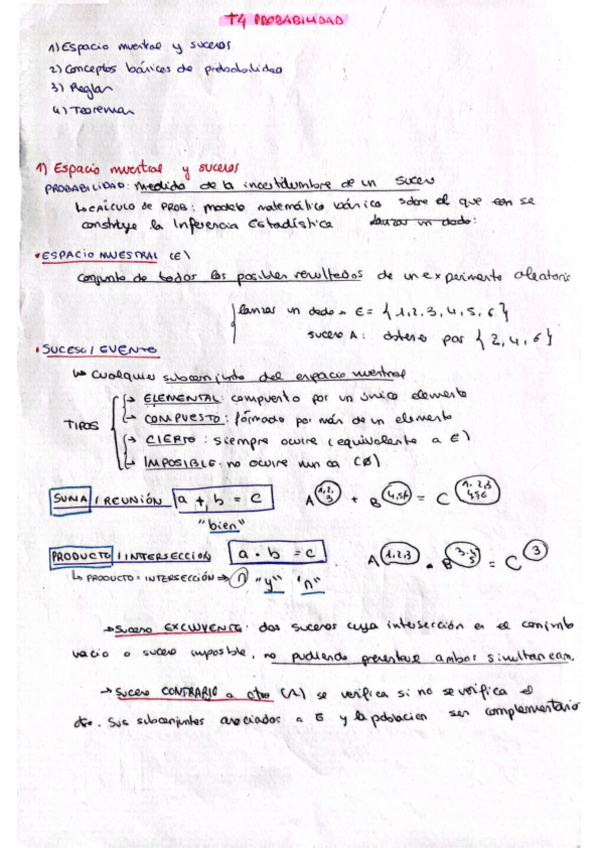 T4 PROBABILIDAD
1) Espacio muestral y sucesos
2) Conceptos básicos de probabilidad
3) Reglas
4) Teoremas
1) Espacio muestral y sucesos
PROBABILIDAD: medida de la incertidumbre de un suceso
↳ CÁLCULO DE PROB: modelo matemático básico sobre el que se
construye la Inferencia Estadística lanzar un dado:
• ESPACIO MUESTRAL (E)
conjunto de todos los posibles resultados de un experimento aleatorio
lanzar un dado → E = {1, 2, 3, 4, 5, 6}
suceso A: obtener par {2, 4, 6}
• SUCESO / EVENTO
↳ Cualquier subconjunto del espacio muestral
TIPOS
→ ELEMENTAL: compuesto por un único elemento
→ COMPUESTO: formado por más de un elemento
→ CIERTO: siempre ocurre (equivalente a E)
→ IMPOSIBLE: no ocurre nunca (Ø)
SUMA / REUNIÓN a + b = c A 1,2,3 + B 4,5,6 = C 1,2,3 4,5,6
"bien"
PRODUCTO / INTERSECCION a · b = c A 1,2,3 · B 3,4,5 = C 3
↳ PRODUCTO = INTERSECCIÓN → ∩ "y" "∩"
→ Suceso EXCLUYENTE: dos sucesos cuya intersección es el conjunto
vacío o suceso imposible, no pudiendo presentarse ambos simultaneam.
→ Suceso CONTRARIO a otro (A) se verifica si no se verifica el
otro. Sus subconjuntos asociados a E y la población ser complementario